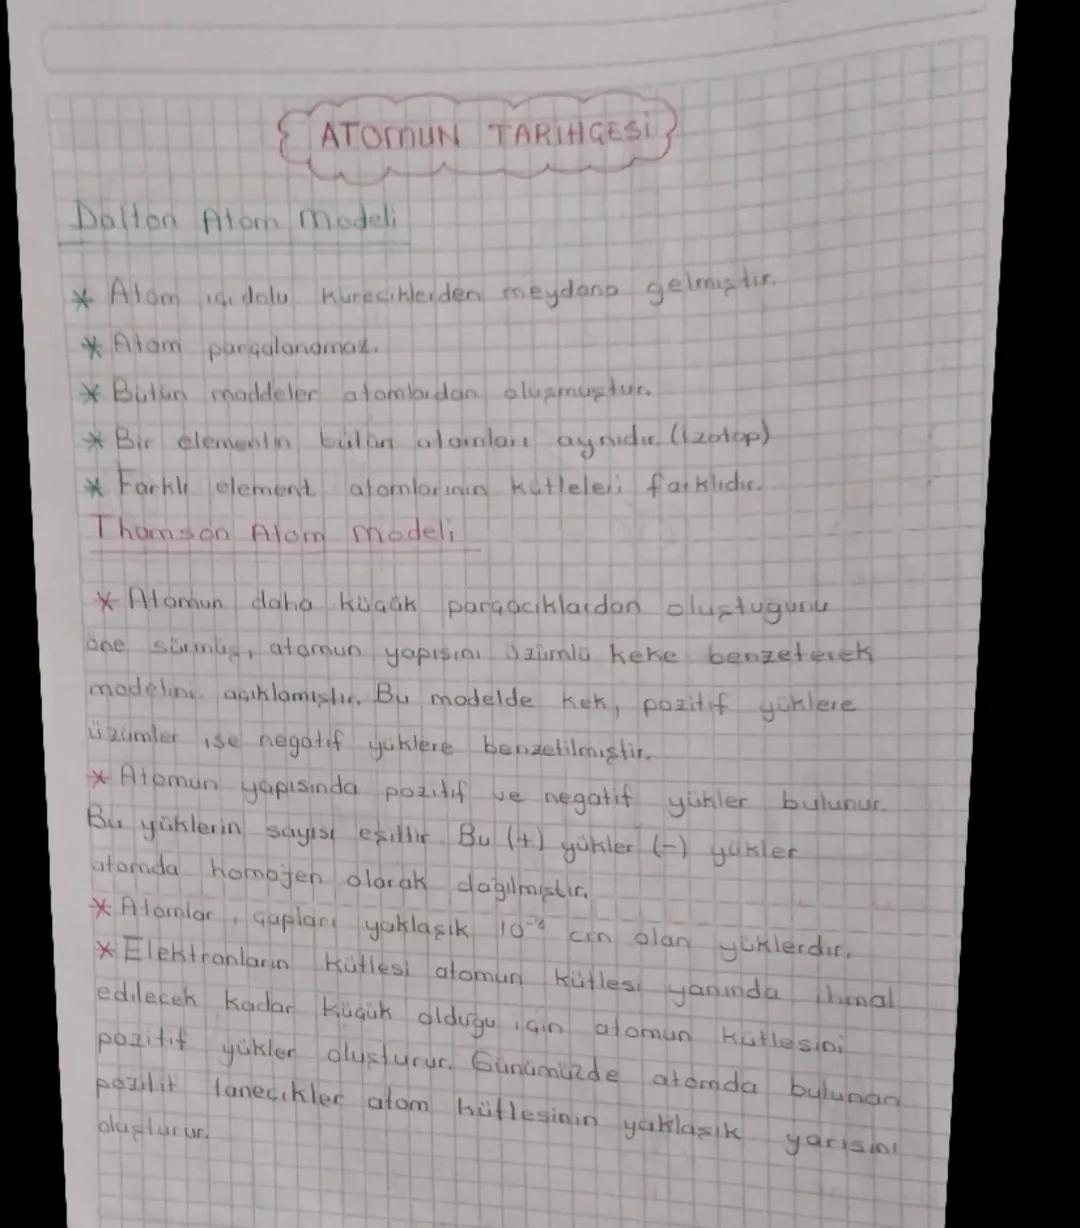 ATOMUN TARİHÇESİ
Dalton Atom Modeli
* Atom içi dolu küreciklerden meydana gelmiştir.
* Atom parçalanamaz.
* Bütün maddeler atomlardan oluşmuştur.
* Bir elementin bütün atomları aynıdır. (İzotop)
* Farklı element atomlarının kütleleri farklıdır.
Thomson Atom Modeli
* Atomun daha küçük parçacıklardan oluştuğunu
öne sürmüş, atomun yapısını üzümlü keke benzeterek
modelini açıklamıştır. Bu modelde kek, pozitif yüklere
üzümler ise negatif yüklere benzetilmiştir.
* Atomun yapısında pozitif ve negatif yükler bulunur.
Bu yüklerin sayısı eşittir. Bu (+) yükler (-) yükler
atomda homojen olarak dağılmıştır.
* Atomlar, çapları yaklaşık 10⁻⁸ cm olan yüklerdir.
* Elektronların kütlesi atomun kütlesi yanında ihmal
edilecek kadar küçük olduğu için atomun kütlesini
pozitif yükler oluşturur. Günümüzde atomda bulunan
pozitif tanecikler atom kütlesinin yaklaşık yarısını
oluşturur.